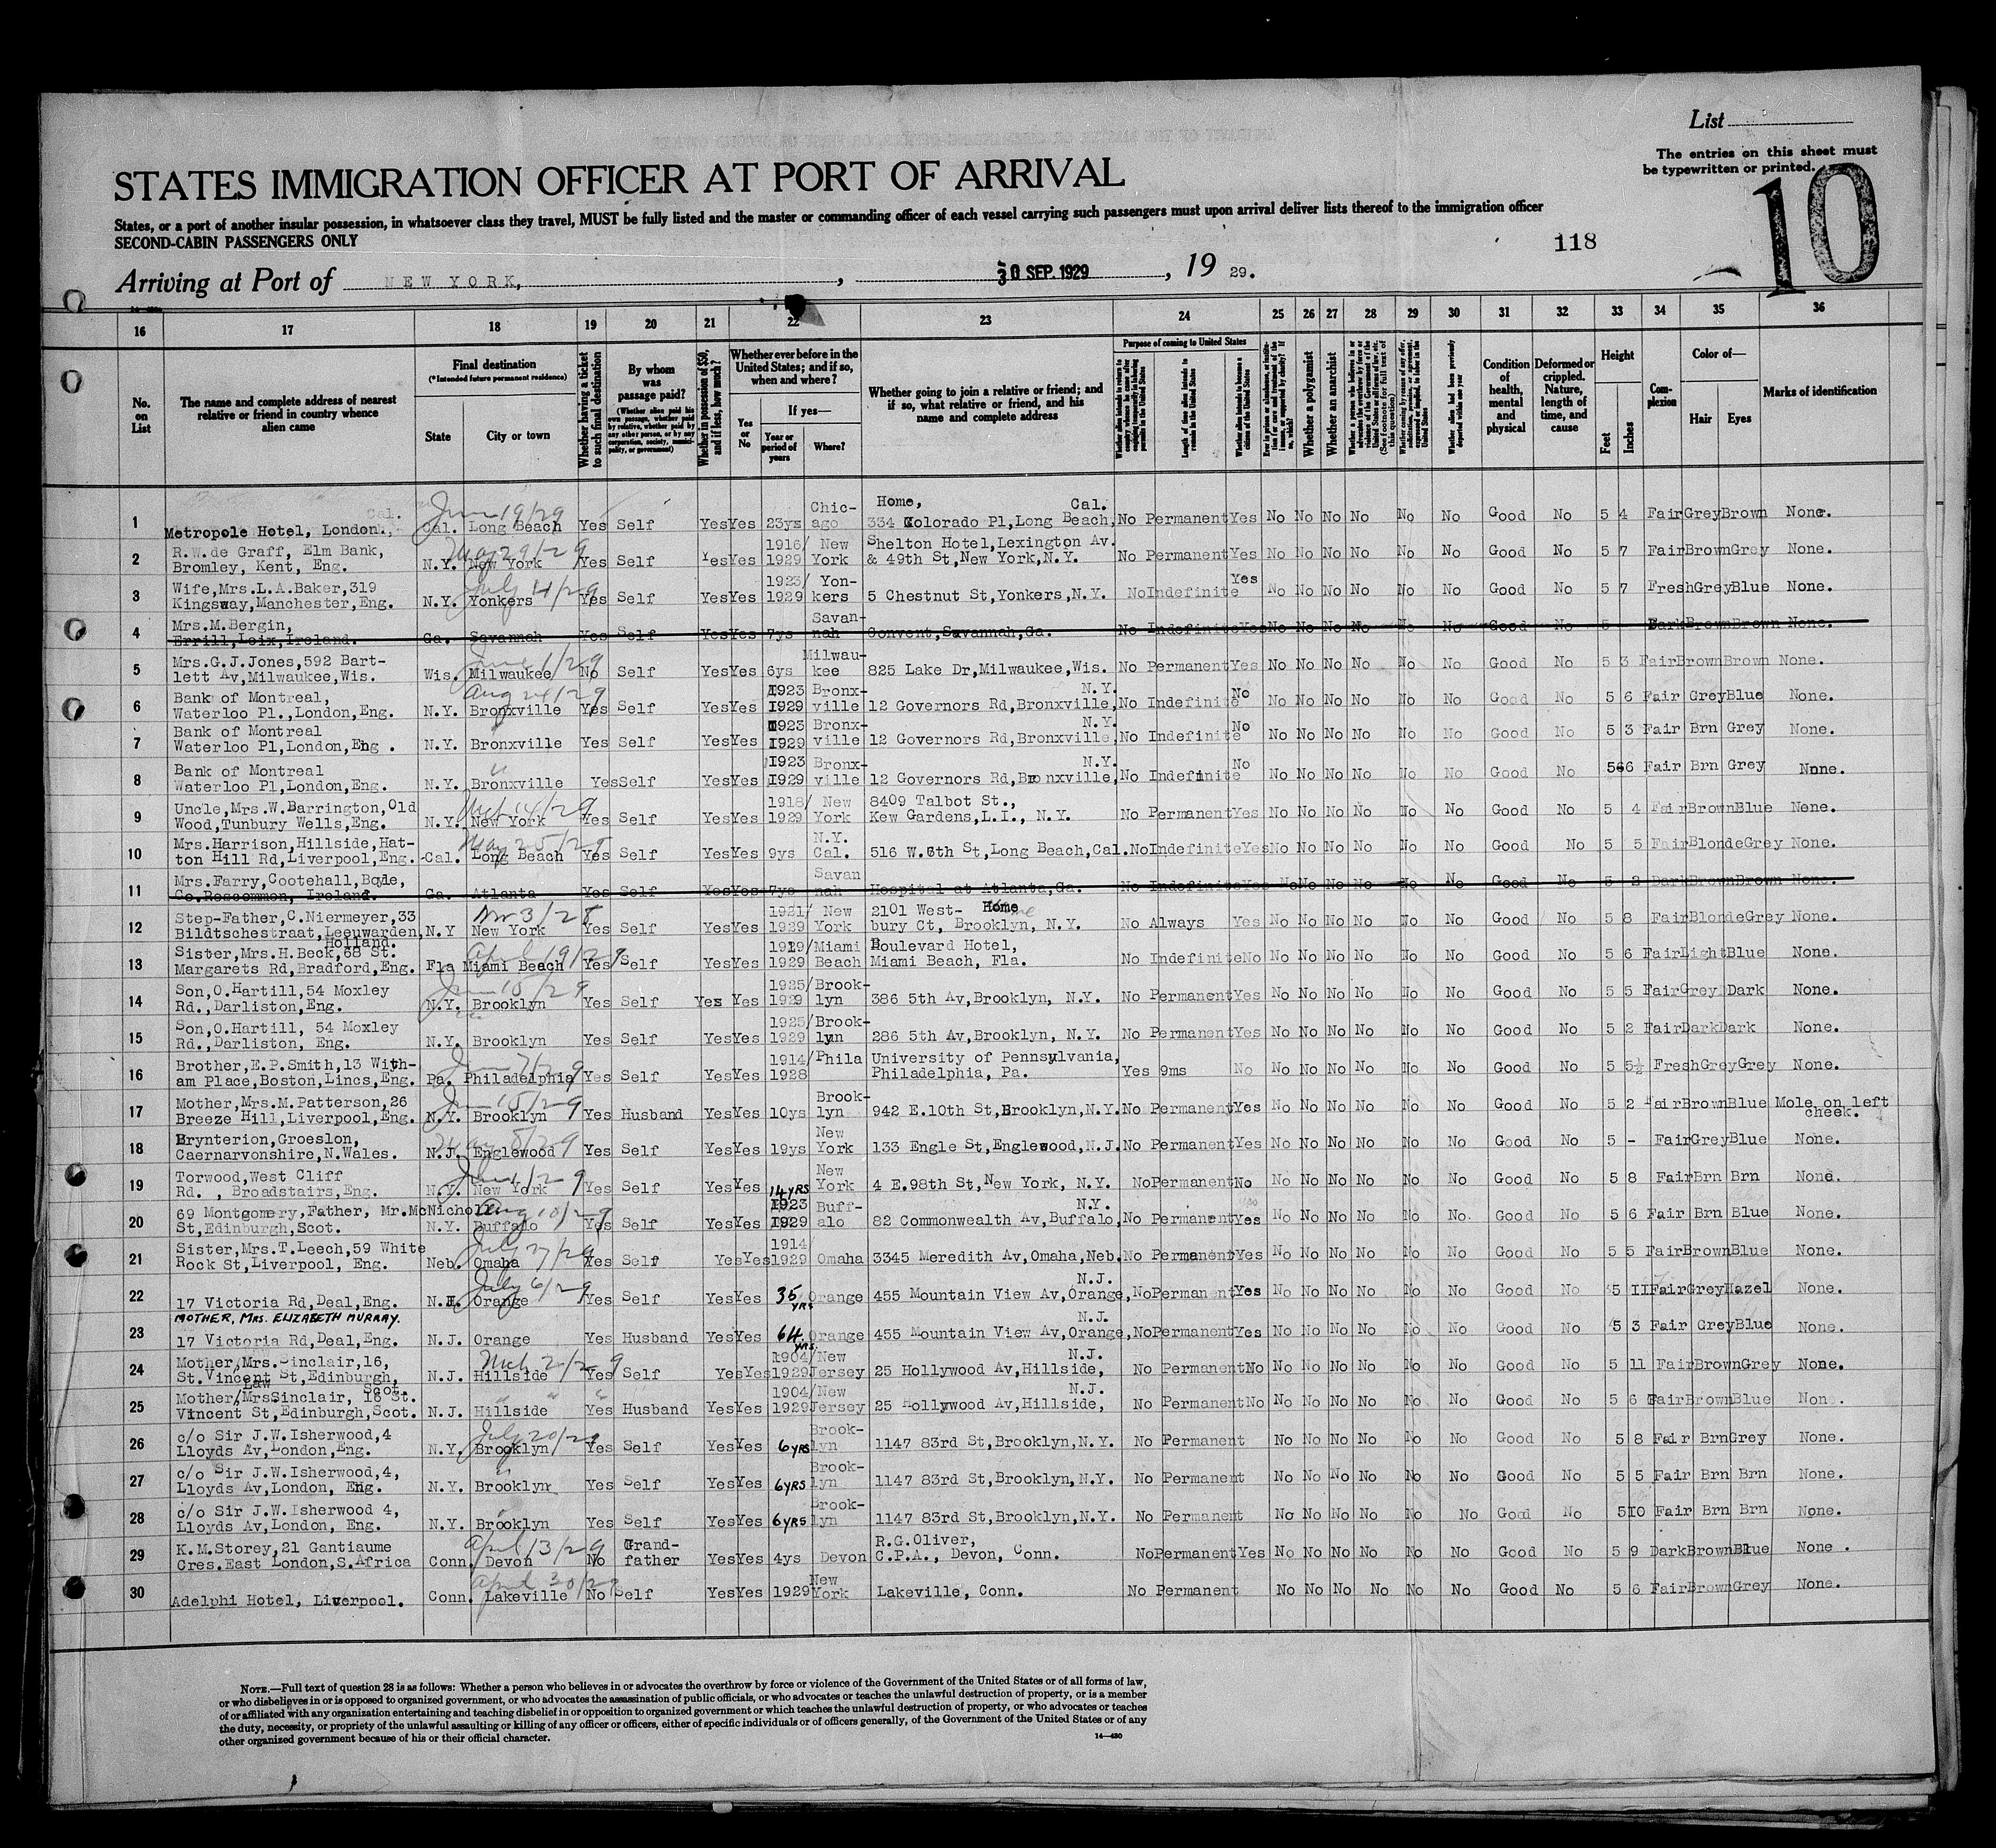 List
The entries on this sheet must
be typewritten or printed.
10
STATES IMMIGRATION OFFICER AT PORT OF ARRIVAL
States, or a port of another insular possession, in whatsoever class they travel, MUST be fully listed and the master or commanding officer of each vessel carrying such passengers must upon arrival deliver lists thereof to the immigration officer
SECOND-CABIN PASSENGERS ONLY
118
Arriving at Port of NEW YORK, , 30 SEP. 1929 , 19 29.
16 17 18 19 20 21 22 23 24 25 26 27 28 29 30 31 32 33 34 35 36
No. on List
The name and complete address of nearest relative or friend in country whence alien came
Final destination
(*Intended future permanent residence)
State City or town
Whether having a ticket to such final destination
By whom was passage paid?
Whether in possession of $50, and if less, how much?
Whether ever before in the United States; and if so, when and where?
Yes or No
If yes—
Year or period of years Where?
Whether going to join a relative or friend; and if so, what relative or friend, and his name and complete address
Purpose of coming to United States
Length of time alien intends to remain in the United States
Whether alien intends to become a citizen of the United States
Whether a polygamist
Whether an anarchist
Whether alien had been previously deported within one year
Condition of health, mental and physical
Deformed or crippled. Nature, length of time, and cause
Height
Feet Inches
Complexion
Color of—
Hair Eyes
Marks of identification
1 Metropole Hotel, London., Cal. Long Beach June 19/29 Yes Self Yes Yes 23ys Chic-ago Home, 334 Colorado Pl,Long Beach, Cal. No Permanent Yes No No No No No No Good No 5 4 Fair Grey Brown None.
2 R.W.de Graff, Elm Bank, Bromley, Kent, Eng. N.Y. New York May 29/29 Yes Self Yes Yes 1916/1929 New York Shelton Hotel,Lexington Av. & 49th St,New York,N.Y. No Permanent Yes No No No No No No Good No 5 7 Fair Brown Grey None.
3 Wife,Mrs.L.A.Baker,319 Kingsway,Manchester,Eng. N.Y. Yonkers July 4/29 Yes Self Yes Yes 1923/1929 Yon-kers 5 Chestnut St,Yonkers,N.Y. No Indefinite Yes No No No No No No Good No 5 7 Fresh Grey Blue None.
4 Mrs.M.Bergin, Errill,Leix,Ireland. Ga. Savannah Yes Self Yes Yes 7ys Savan-nah Convent,Savannah,Ga. No Indefinite Yes No No No No No No Good No 5 Dark Brown Brown None.
5 Mrs.G.J.Jones,592 Bart-lett Av,Milwaukee,Wis. Wis. Milwaukee June 1/29 No Self Yes Yes 6ys Milwau-kee 825 Lake Dr,Milwaukee,Wis. No Permanent Yes No No No No No No Good No 5 3 Fair Brown Brown None.
6 Bank of Montreal, Waterloo Pl.,London,Eng. N.Y. Bronxville Aug 24/29 Yes Self Yes Yes 1923 1929 Bronx-ville 12 Governors Rd,Bronxville, N.Y. No Indefinite No No No No No No No Good No 5 6 Fair Grey Blue None.
7 Bank of Montreal Waterloo Pl,London,Eng . N.Y. Bronxville Yes Self Yes Yes 1923 1929 Bronx-ville 12 Governors Rd,Bronxville, N.Y. No Indefinite No No No No No No No Good No 5 3 Fair Brn Grey None.
8 Bank of Montreal Waterloo Pl,London,Eng. N.Y. Bronxville " Yes Self Yes Yes 1923 1929 Bronx-ville 12 Governors Rd,Bronxville, N.Y. No Indefinite No No No No No No No Good No 5 6 Fair Brn Grey None.
9 Uncle,Mrs.W.Barrington,Old Wood,Tunbury Wells,Eng. N.Y. New York Yes Self Yes Yes 1918/1929 New York 8409 Talbot St., Kew Gardens,L.I., N.Y. No Permanent Yes No No No No No No Good No 5 4 Fair Brown Blue None.
10 Mrs.Harrison,Hillside,Hat-ton Hill Rd,Liverpool,Eng. Cal. Long Beach Yes Self Yes Yes 9ys N.Y. Cal. 516 W.6th St,Long Beach,Cal. No Indefinite Yes No No No No No No Good No 5 5 Fair Blonde Grey None.
11 Mrs.Farry,Cootehall,Boyle, Co.Roscommon, Ireland. Ga. Atlanta Yes Self Yes Yes 7ys Savan nah Hospital at Atlanta,Ga. No Indefinite Yes No No No No No No Good No 5 2 Dark Brown Brown None.
12 Step-Father,C.Niermeyer,33 Bildtschestraat,Leeuwarden, Holland. N.Y New York Yes Self Yes Yes 1921/1929 New York 2101 West-bury Ct, Brooklyn, N.Y. Home No Always Yes No No No No No No Good No 5 8 Fair Blonde Grey None.
13 Sister,Mrs.H.Beck,68 St. Margarets Rd,Bradford,Eng. Fla Miami Beach April 19/29 Yes Self Yes Yes 1929 Miami Beach Boulevard Hotel, Miami Beach, Fla. No Indefinite No No No No No No No Good No 5 6 Fair Light Blue None.
14 Son,O.Hartill,54 Moxley Rd.,Darliston,Eng. N.Y. Brooklyn June 15/29 Yes Self Yes Yes 1925/1929 Brook-lyn 386 5th Av,Brooklyn, N.Y. No Permanent Yes No No No No No No Good No 5 5 Fair Grey Dark None.
15 Son,O.Hartill, 54 Moxley Rd.,Darliston, Eng. N.Y. Brooklyn Yes Self Yes Yes 1925/1929 Brook-lyn 286 5th Av,Brooklyn, N.Y. No Permanent Yes No No No No No No Good No 5 2 Fair Dark Dark None.
16 Brother,E.P.Smith,13 With-am Place,Boston,Lincs,Eng. Pa. Philadelphia Yes Self Yes Yes 1914/1928 Phila University of Pennsylvania, Philadelphia, Pa. Yes 9ms No No No No No No No Good No 5 5½ Fresh Grey Grey None.
17 Mother,Mrs.M.Patterson,26 Breeze Hill,Liverpool,Eng. N.Y. Brooklyn June 15/29 Yes Husband Yes Yes 10ys Brook-lyn 942 E.10th St,Brooklyn,N.Y. No Permanent Yes No No No No No No Good No 5 2 Fair Brown Blue Mole on left cheek.
18 Brynterion,Groeslon, Caernarvonshire,N.Wales. N.J. Englewood May 8/29 Yes Self Yes Yes 19ys New York 133 Engle St,Englewood,N.J. No Permanent Yes No No No No No No Good No 5 - Fair Grey Blue None.
19 Torwood,West Cliff Rd. , Broadstairs,Eng. N.Y. New York Yes Self Yes Yes 14 YRS New York 4 E.98th St,New York, N.Y. No Permanent No No No No No No No Good No 5 8 Fair Brn Brn None.
20 69 Montgomery,Father, Mr.McNicholl St,Edinburgh,Scot. N.Y. Buffalo Aug 10/29 Yes Self Yes Yes 1923 1929 Buff-alo 82 Commonwealth Av,Buffalo, N.Y. No Permanent Yes No No No No No No Good No 5 6 Fair Brn Blue None.
21 Sister,Mrs.T.Leech,59 White Rock St,Liverpool, Eng. Neb. Omaha July 27/29 Yes Self Yes Yes 1914/1929 Omaha 3345 Meredith Av,Omaha,Neb. No Permanent Yes No No No No No No Good No 5 5 Fair Brown Blue None.
22 17 Victoria Rd,Deal,Eng. N.J. Orange July 6/29 Yes Self Yes Yes 35 YRS Orange 455 Mountain View Av,Orange, N.J. No Permanent Yes No No No No No No Good No 5 11 Fair Grey Hazel None.
23 MOTHER, MRS. ELIZABETH MURRAY. 17 Victoria Rd,Deal,Eng. N.J. Orange Yes Husband Yes Yes 64 YRS. Orange 455 Mountain View Av,Orange, N.J. No Permanent Yes No No No No No No Good No 5 3 Fair Grey Blue None.
24 Mother,Mrs.Sinclair,16, St.Vincent St,Edinburgh, Scot. N.J. Hillside Mch 2/29 Yes Self Yes Yes 1904/1929 New Jersey 25 Hollywood Av,Hillside, N.J. No Permanent No No No No No No No Good No 5 11 Fair Brown Grey None.
25 Mother/Law MrsSinclair, 16 St. Vincent St,Edinburgh,Scot. N.J. Hillside " " " Yes Husband Yes Yes 1904/1929 New Jersey 25 Hollywood Av,Hillside, N.J. No Permanent No No No No No No No Good No 5 6 Fair Brown Blue None.
26 c/o Sir J.W.Isherwood,4 Lloyds Av,London,Eng. N.Y. Brooklyn July 20/29 Yes Self Yes Yes 6 YRS Brook-lyn 1147 83rd St,Brooklyn,N.Y. No Permanent No No No No No No Good No 5 8 Fair Brn Grey None.
27 c/o Sir J.W.Isherwood,4, Lloyds Av,London, Eng. N.Y. Brooklyn " Yes Self Yes Yes 6 YRS Brook-lyn 1147 83rd St,Brooklyn,N.Y. No Permanent No No No No No No Good No 5 5 Fair Brn Brn None.
28 c/o Sir J.W.Isherwood 4, Lloyds Av,London, Eng. N.Y. Brooklyn " Yes Self Yes Yes 6 YRS Brook-lyn 1147 83rd St,Brooklyn,N.Y. No Permanent No No No No No No Good No 5 10 Fair Brn Brn None.
29 K.M.Storey,21 Gantiaume Cres.East London,S.Africa Conn. Devon April 13/29 No Grand-father Yes Yes 4ys Devon R.G.Oliver, C.P.A., Devon, Conn. No Permanent Yes No No No No No No Good No 5 9 Dark Brown Blue None .
30 Adelphi Hotel, Liverpool. Conn. Lakeville April 30/29 No Self Yes Yes 1929 New York Lakeville, Conn. No Permanent No No No No No No Good No 5 6 Fair Brown Grey None.
NOTE.—Full text of question 28 is as follows: Whether a person who believes in or advocates the overthrow by force or violence of the Government of the United States or of all forms of law,
or who disbelieves in or is opposed to organized government, or who advocates the assassination of public officials, or who advocates or teaches the unlawful destruction of property, or is a member
of or affiliated with any organization entertaining and teaching disbelief in or opposition to organized government or which teaches the unlawful destruction of property, or who advocates or teaches
the duty, necessity, or propriety of the unlawful assaulting or killing of any officer or officers, either of specific individuals or of officers generally, of the Government of the United States or of any
other organized government because of his or their official character.
14—430